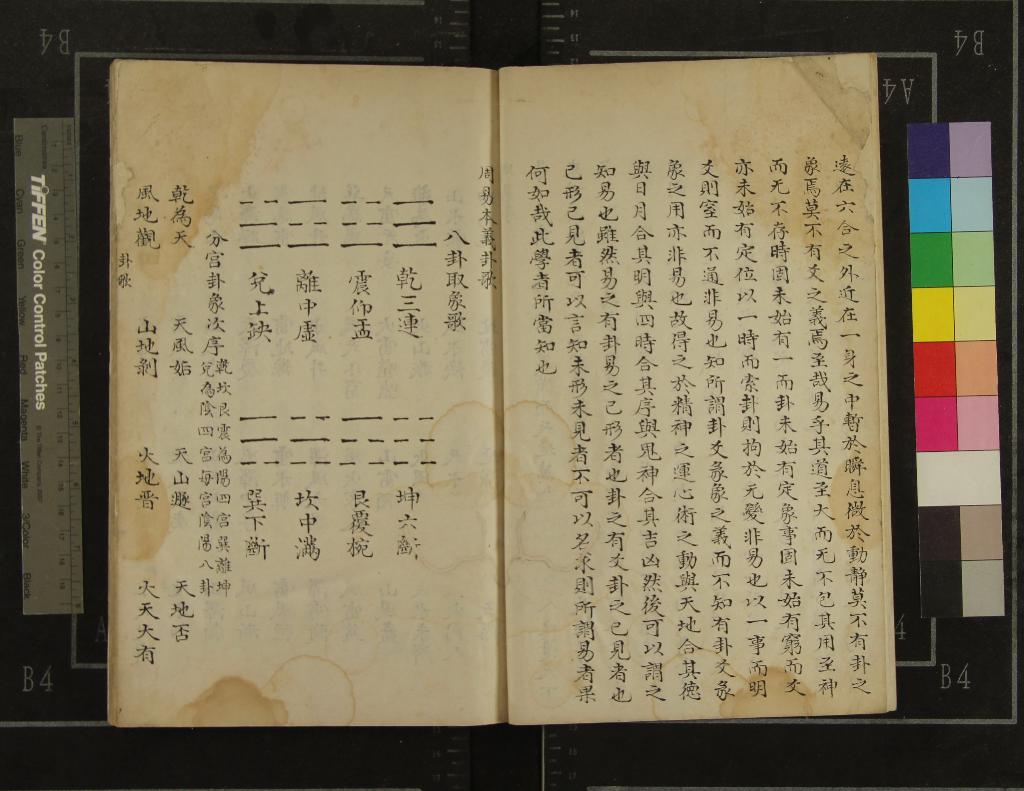 遠在六合之外近在一身之中暫於瞬息微於動靜莫不有卦之
象焉莫不有爻之義焉至哉易乎其道至大而无不包其用至神
而无不存時固未始有一而卦未始有定象事固未始有窮而爻
亦未始有定位以一時而索卦則拘於无變非易也以一事而明
爻則窒而不通非易也知所謂卦爻彖象之義而不知有卦爻彖
象之用亦非易也故得之於精神之運心術之動與天地合其德
與日月合其明與四時合其序與鬼神合其吉凶然後可以謂之
知易也雖然易之有卦易之已形者也卦之有爻卦之已見者也
已形已見者可以言知未形未見者不可以名求則所謂易者果
何如哉此學者所當知也
周易本義卦歌
八卦取象歌
乾三連 坤六斷
震仰盂 艮覆椀
離中虛 坎中滿
兌上缺 巽下斷
分宮卦象次序 乾坎艮震為陽四宮巽離坤
兌為陰四宮每宮陰陽八卦
乾為天 天風姤 天山遯 天地否
風地觀 山地剝 火地晉 火天大有
卦歌
TIFFEN Color Control Patches
Blue Cyan Green Yellow Red Magenta White 3/Color Black
B4
B4
A4
B4
B4